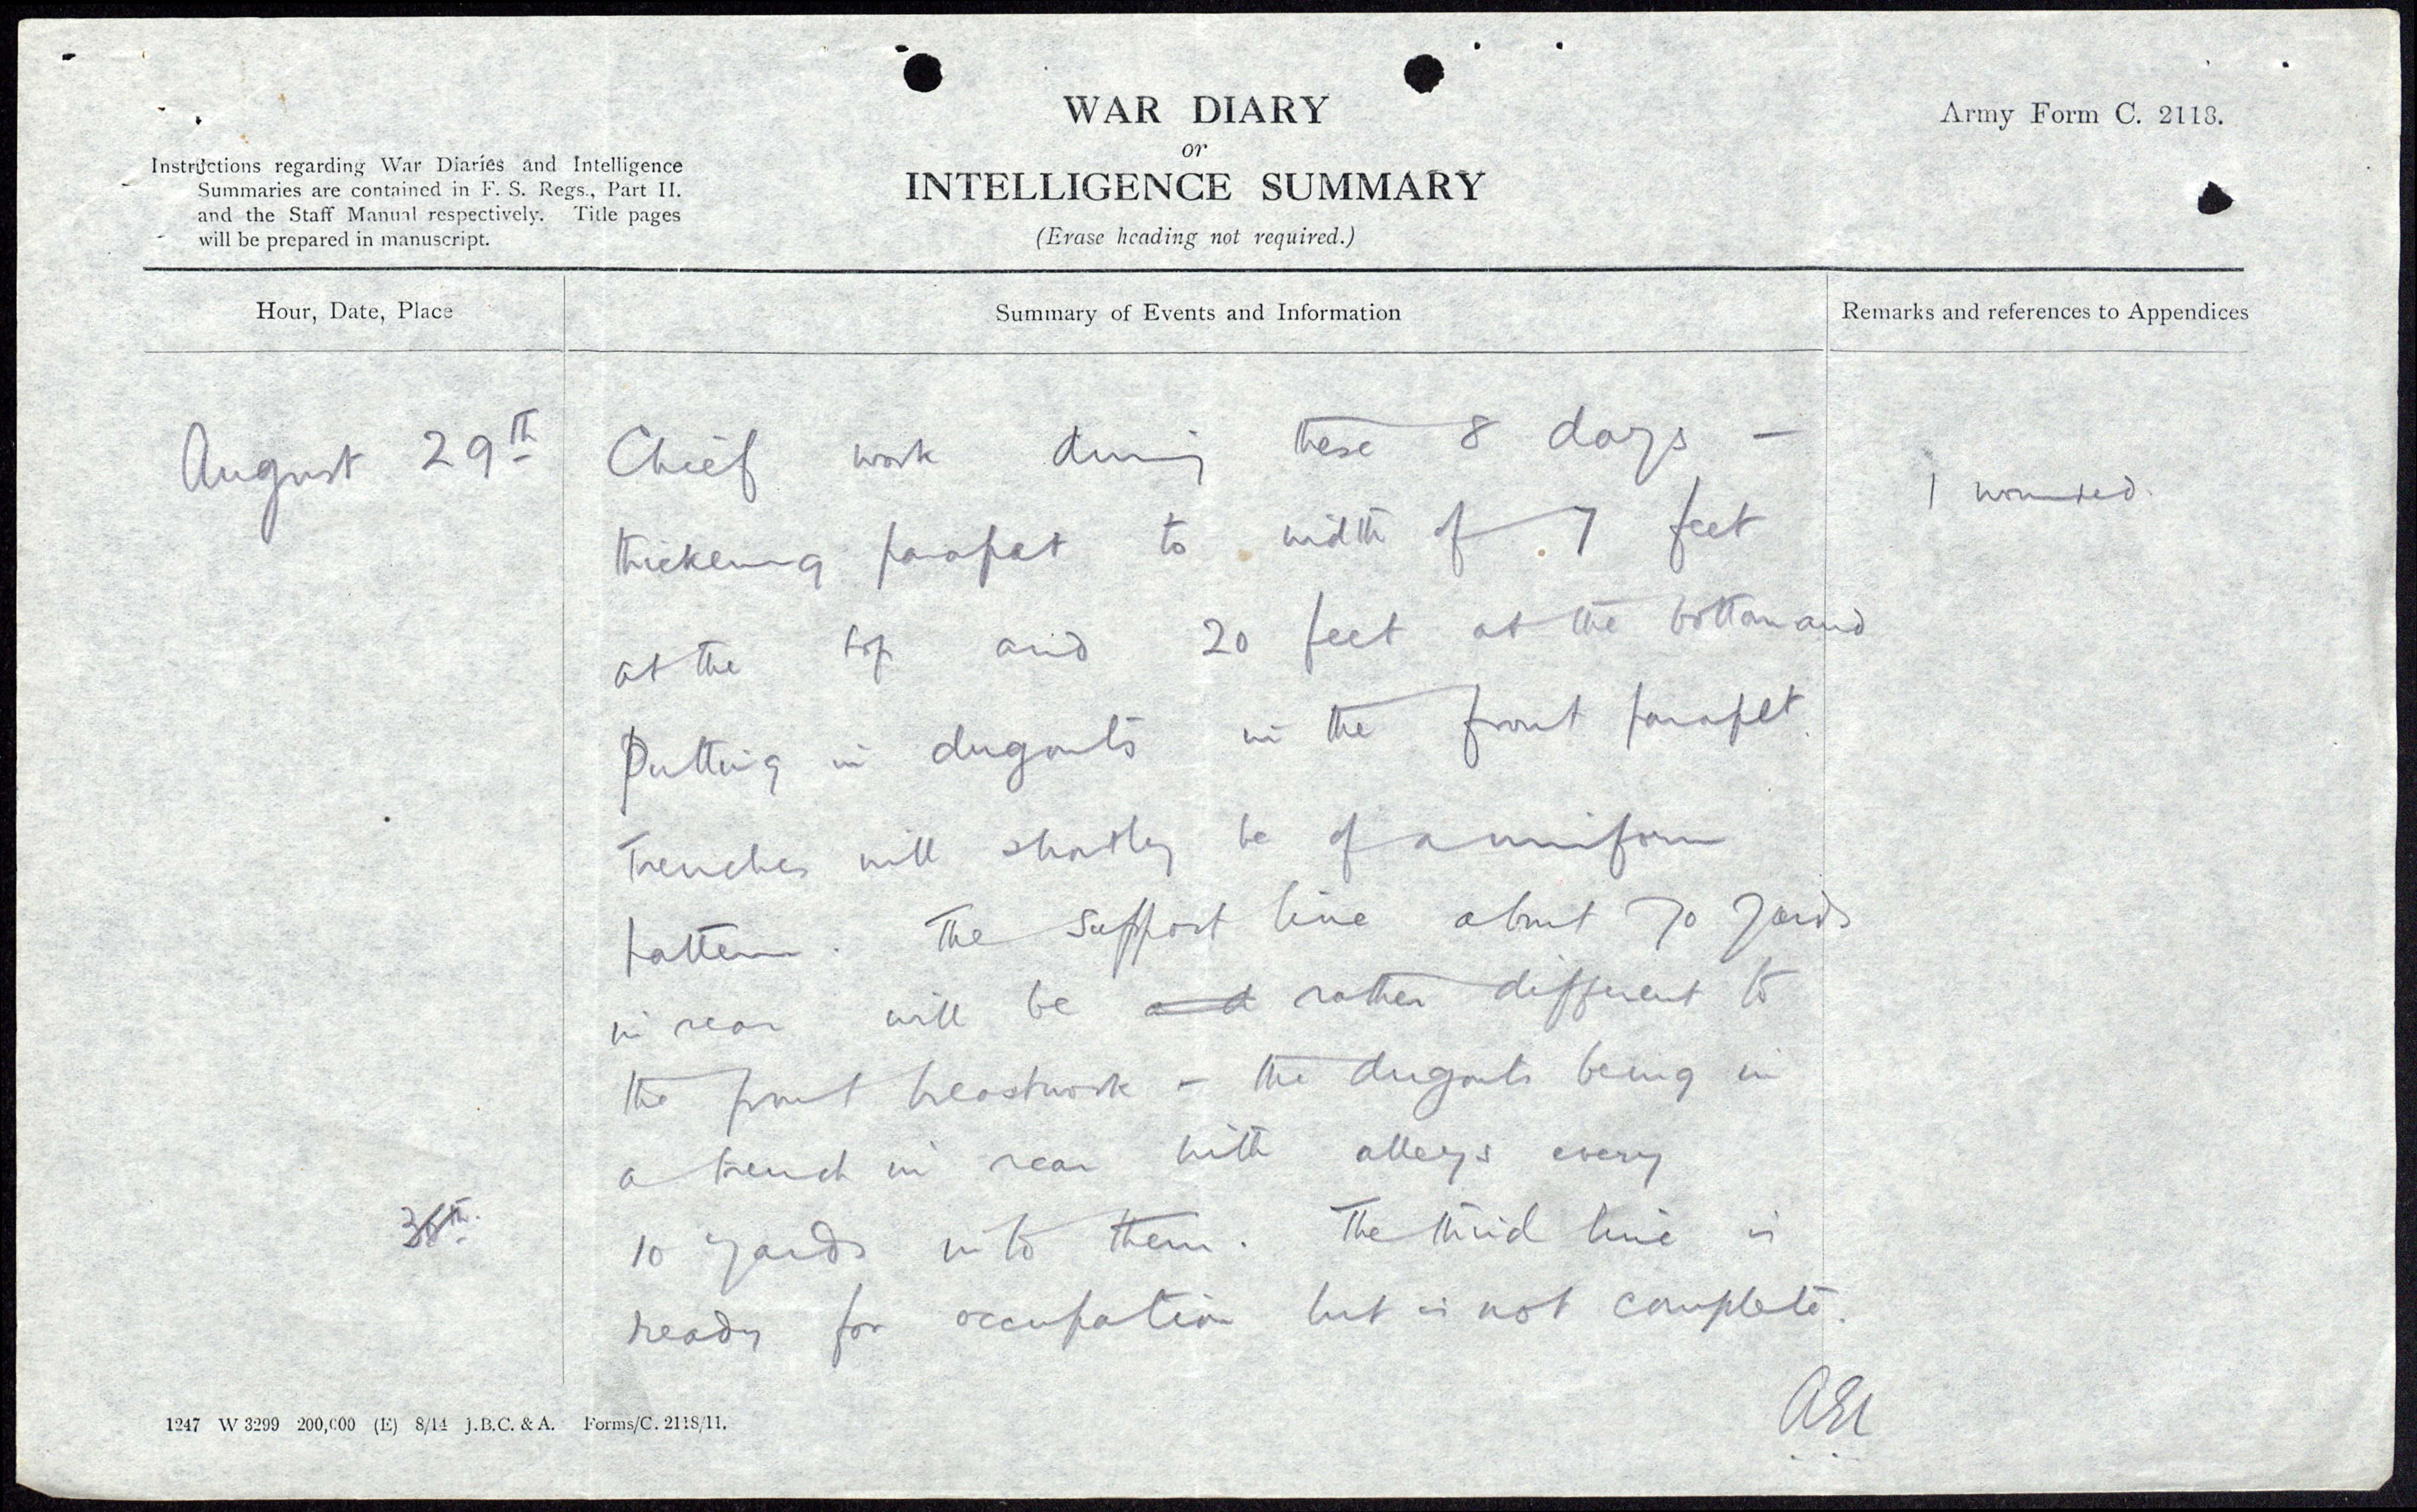 WAR DIARY
or
INTELLIGENCE SUMMARY
(Erase heading not required.)
Army Form C. 2118.
Instructions regarding War Diaries and Intelligence
Summaries are contained in F. S. Regs., Part II.
and the Staff Manual respectively. Title pages
will be prepared in manuscript.
Hour, Date, Place
Summary of Events and Information
Remarks and references to Appendices
August 29th
Chief work during these 8 days —
1 wounded.
thickening parapet to width of 7 feet
at the top and 20 feet at the bottom and
Putting in dugouts in the front parapet.
Trenches will shortly be of a uniform
pattern. The support line about 70 yards
in rear will be rather different to
the front breastwork — the dugouts being in
a trench in rear with alleys every
10 yards into them. The third line is
ready for occupation but is not complete.
1247 W 3299 200,000 (E) 8/14 J.B.C. & A. Forms/C. 2118/11.